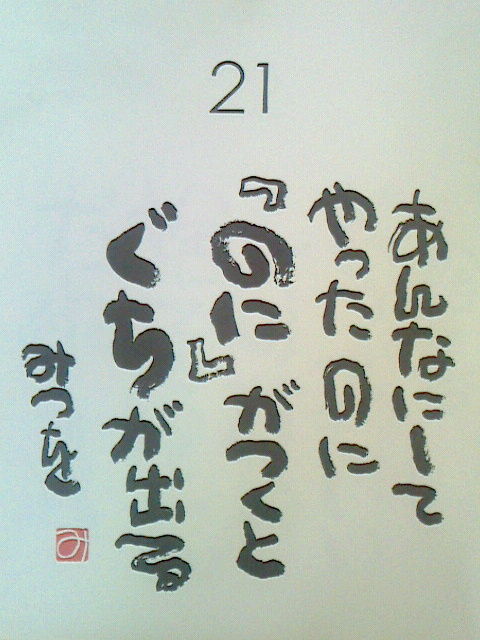 21
あんなにして
やったのに
『のに』がつくと
ぐちが出る
みつを
み